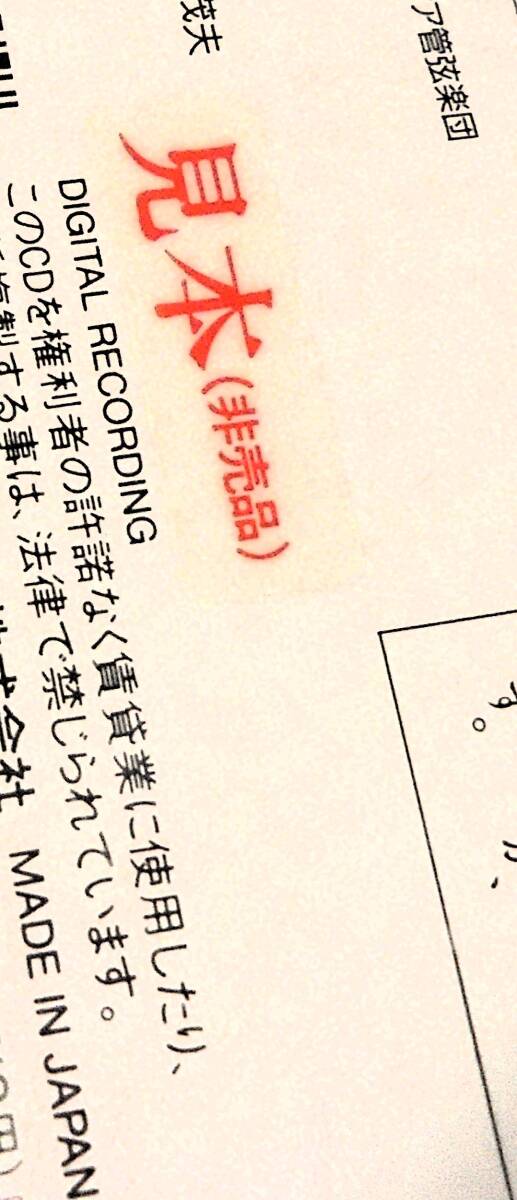 ア管弦楽団
茂夫
見本(非売品)
DIGITAL RECORDING
このCDを権利者の許諾なく賃貸業に使用したり、
複製する事は、法律で禁じられています。
式会社 MADE IN JAPAN
円)
す。
が、